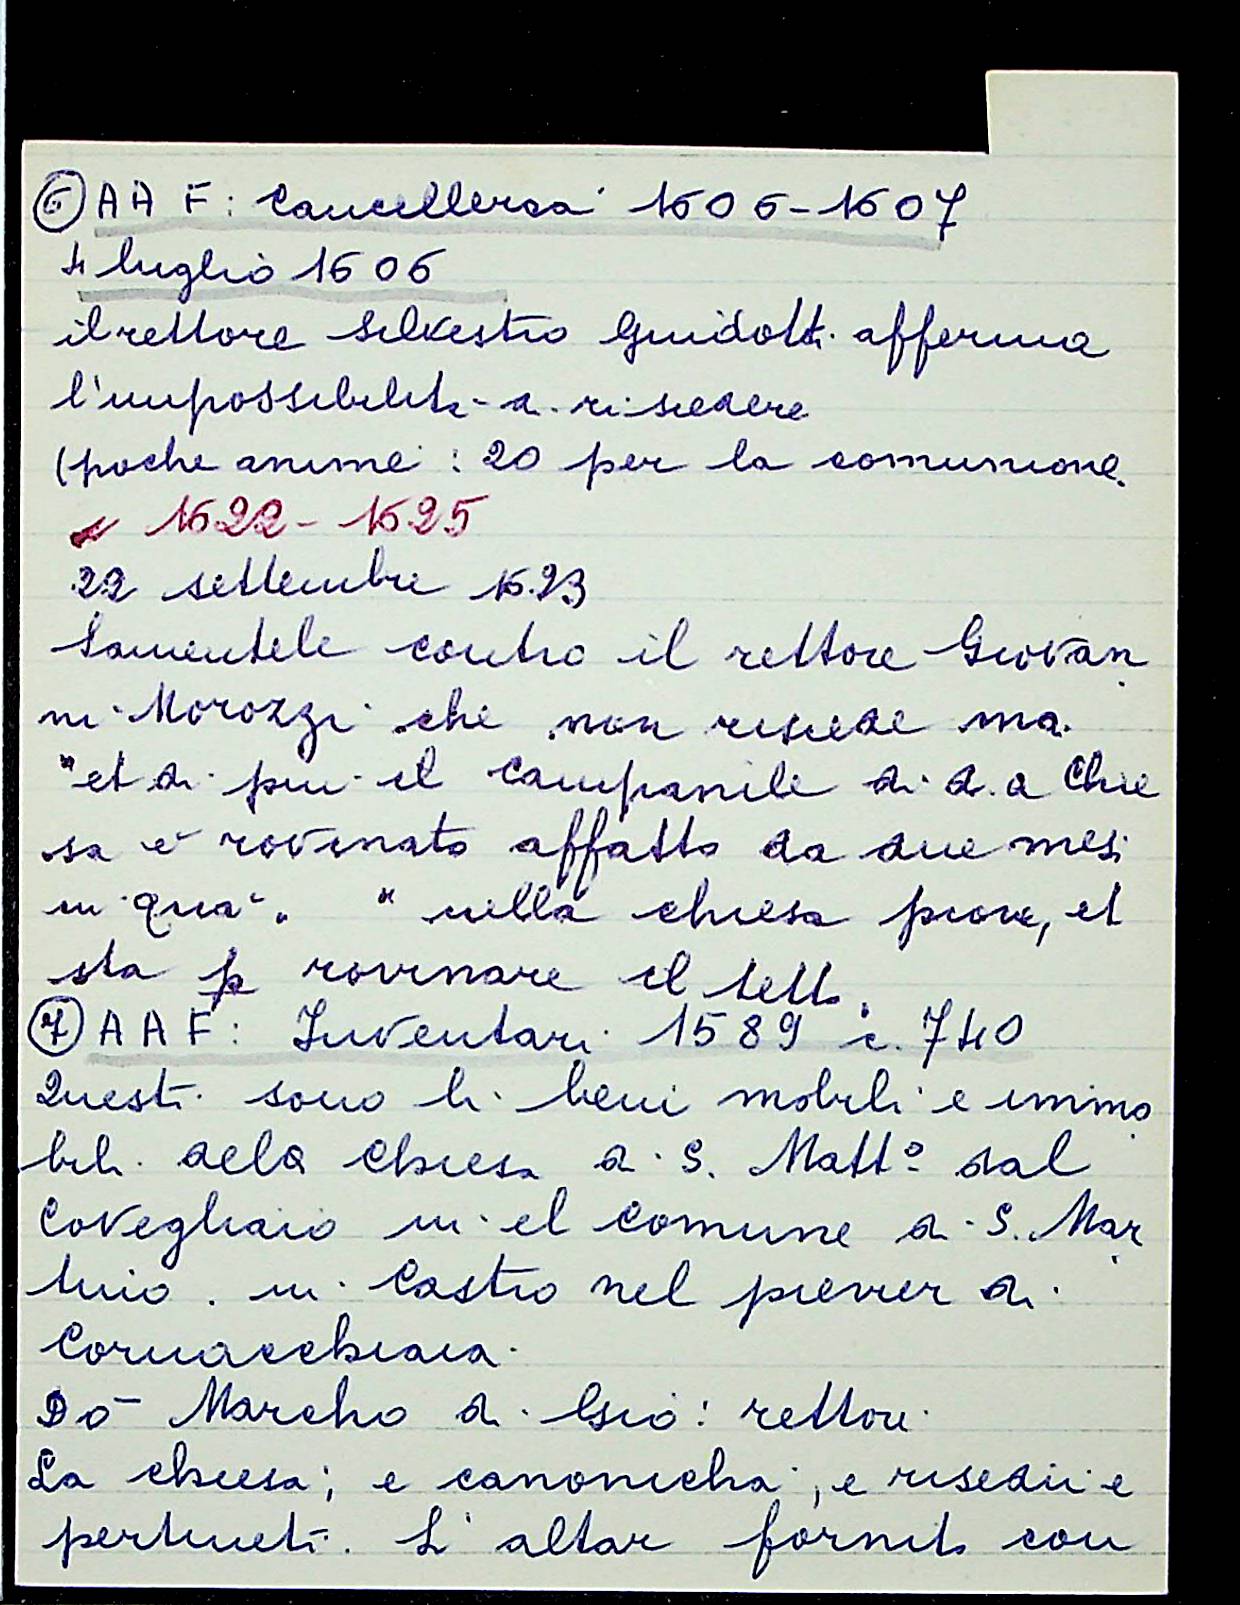 ⑥ AAF: Cancelleria 1606-1607
4 luglio 1606
il rettore Silvestro Guidotti afferma
l'impossibilità a risiedere
(poche anime: 20 per la comunione.
1622-1625
22 settembre 1623
Lamentele contro il rettore Giovan
ni Morozzi che non risiede ma
"et di piu il campanile di d.a Chie
sa è rovinato affatto da due mesi
in qua". "nella chiesa piove, et
sta p rovinare il tetto.
⑦ AAF: Inventari 1589 c. 740
Questi sono li beni mobili e immo
bili dela Chiesa di S. Matt° dal
Covegliaio in el comune di S. Mar
tino in Castro nel pievier di
Cornacchiaia.
Do- Marcho di Gio: rettor
La chiesa; e canonicha; e risedii e
pertineti. L'altar fornito con